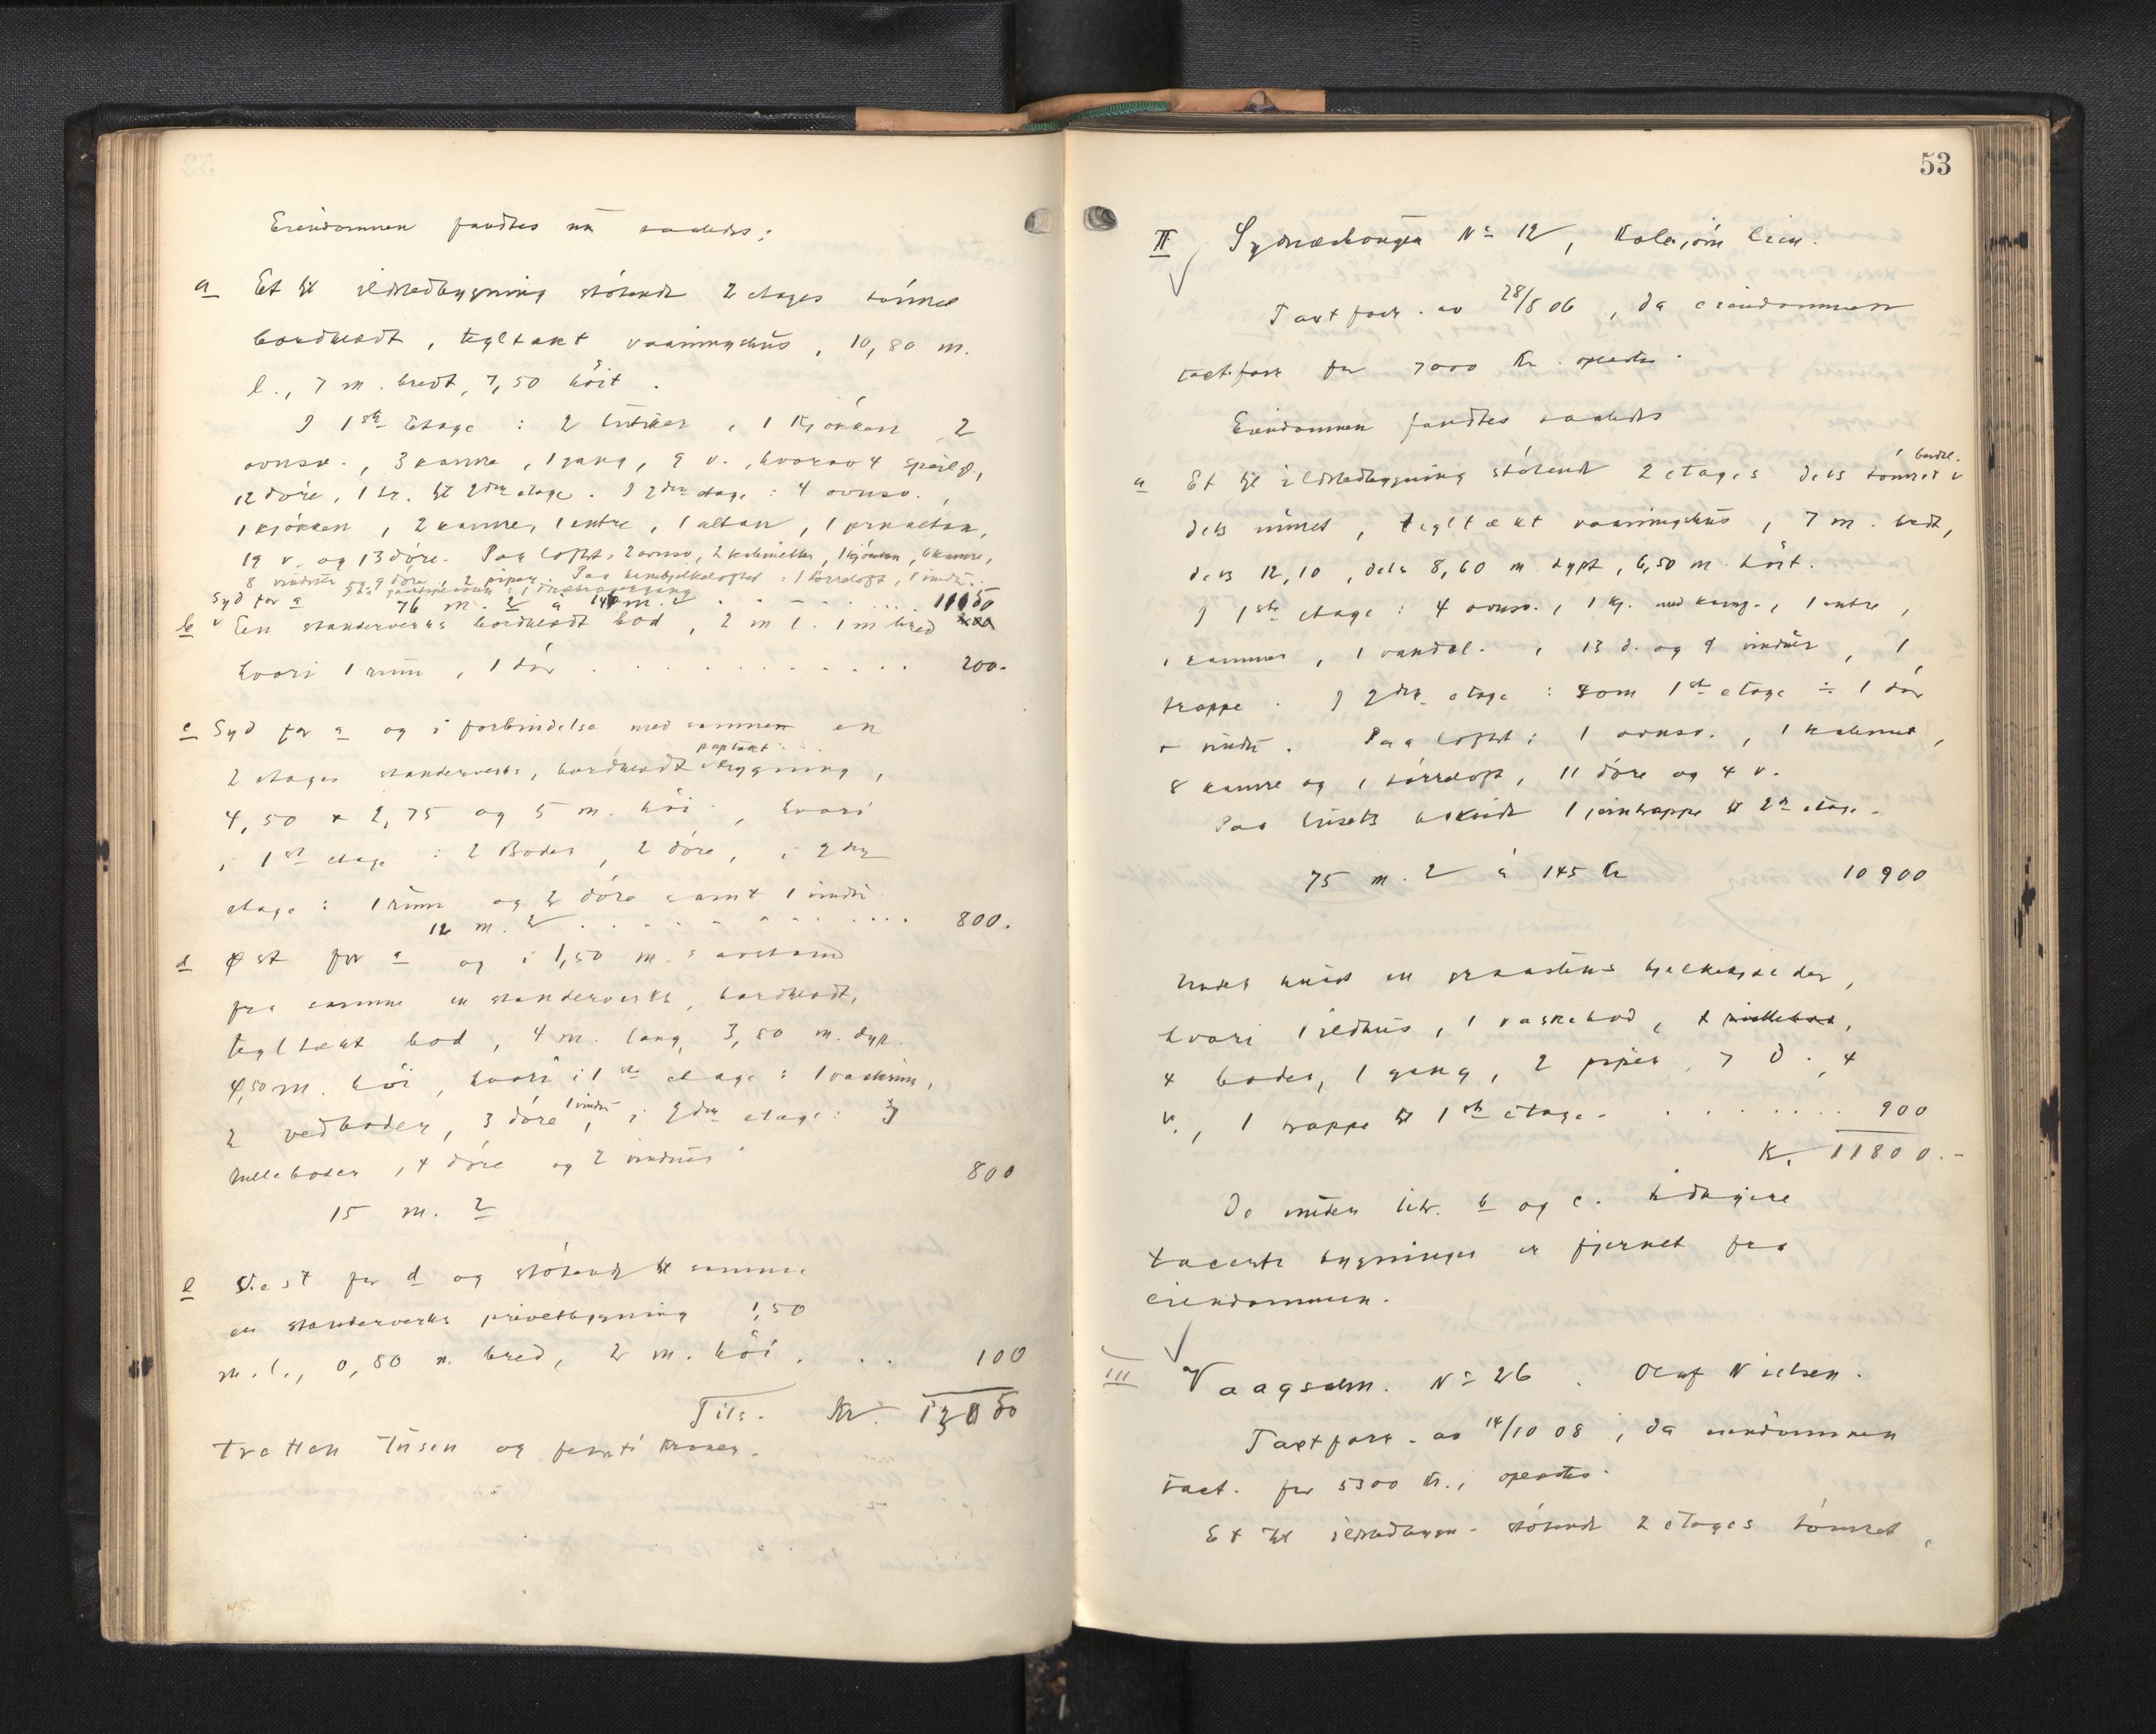 Eiendommen fandtes nu saaledes:
a Et til ildstedbygning stötende 2 etages tömret
bordklædt, tegltækt vaaningshus, 10,80 m.
l., 7 m. bredt, 7,50 höit.
I 1ste Etage: 2 butiker, 1 Kjökken 2
ovnsv., 3 kamre, 1 gang, 9 v., hvorav 4 speilgl,
12 döre, 1 tr. til 2den etage. I 2den etage: 4 ovnsv.,
1 kjökken, 2 kamre, 1 entre, 1 altan,
19 v. og 13 döre. Paa loftet: 2 ovnsv, 2 kabinetter, 1 kjökken, 6 kamre,
8 vinduer og 9 döre, 2 piper. Paa hanebjelkeloftet: 1 törreloft, 1 vindu.
Syd for a
76 m. 2 a 14 m. 2 11150
b En standerverks bordklædt bod, 2 m l. 1 m bred
hvori 1 rum, 1 dör 200.
c Syd for a og i forbindelse med sammen en
2 etages standerverks, bordklædt paptækt bygning,
4,50 x 2,75 og 5 m. höi, hvori
i 1ste etage: 2 Boder, 2 döre, i 2den
etage: 1 rum og 2 döre samt 1 vindu
12 m. 2 800.
d Øst for a og i 1,50 m.s avstand
fra samme en standerverks, bordklædt,
tegltækt bod, 4 m. lang, 3,80 m. dyp.
4,50 m. höi, hvori i 1ste etage: 1 vaskerum,
2 vedboder, 3 döre, 1 vindu i 2den etage: 3
rulleboder, 4 döre og 2 vinduer
800
15 m. 2
e Vest for d og stötende til samme
en standerverks privetbygning 1,50
m. l., 0,80 m. bred, 2 m. höi. 100
Tils. Kr. 13050
tretten tusen og femti kroner.
53
II Sydnæshougen No 12,
Taxtforr. av 28/8 06, da eiendommen
taxt.forr for 7000 Kr. oplæstes.
Eiendommen fandtes saaledes
a Et til ildstedbygning stötende 2 etages dels tömret bordkl.
dels muret, tegltækt vaaningshus, 7 m. bredt,
dels 12,10, dels 8,60 m. dypt, 6,50 m. höit.
I 1ste etage: 4 ovnsv., 1 kj. med kamf., 1 entre,
1 kammer, 1 vandkl., 13 d. og 9 vinduer, 1
trappe. I 2den etage: som 1ste etage ÷ 1 dör
+ vindu. Paa loftet: 1 ovnsv., 1 kabinet,
8 kamre og 1 törreloft, 11 döre og 4 v.
Paa husets bakside 1 jerntrappe til 2n etage.
75 m. 2 á 145 Kr 10900
Under huset en graastens bjelkekjelder,
hvori 1 ildhus, 1 vaskebod, 1 rullebod,
4 boder, 1 gang, 2 piper, 7 d., 4
v., 1 trappe til 1ste etage. 900
K. 11800.-
De under litr. b og c. tidligere
taxerte bygninger er fjernet fra
eiendommen.
III Vaagsalm. No 26. Oluf Nielsen.
Taxtforr. av 14/10 08, da eiendommen
taxt. for 5300 Kr., oplæstes.
Et til ildstedbygn. stötende 2 etages tömret,